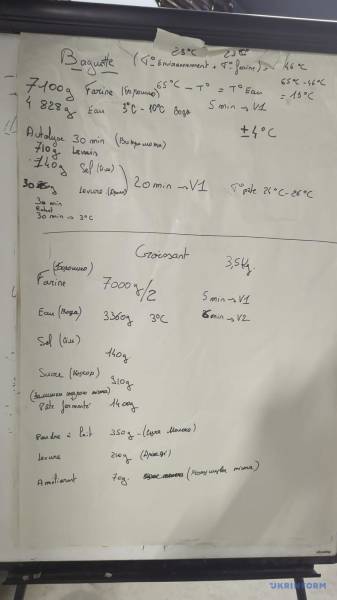 23°C 23°C
Baguette (T° Environnement + T° farine) = 46°C
7100g Farine (Борошно) 65°C - T° = T° Eau 65°C - 46°C = 19°C
4 828g Eau 3°C - 10°C Вода 5 min → V1
± 4°C
Autolyse 30 min
710g Levain
140g Sel (Сіль)
Levure 20 min → V1 T° pâte 24°C - 26°C
30 min
30 min → 3°C
Croissant 3,5 kg.
(Борошно)
Farine 7000g/2 5 min → V1
Eau (Вода) 3360g 3°C 6 min → V2
Sel (Сіль) 140g
Sucre (Цукор)
Pâte fermentée 1400g
Poudre à lait 350g - (Сухе Молоко)
Levure (Дріжджі)
Améliorant 70g.
UKRINFORM